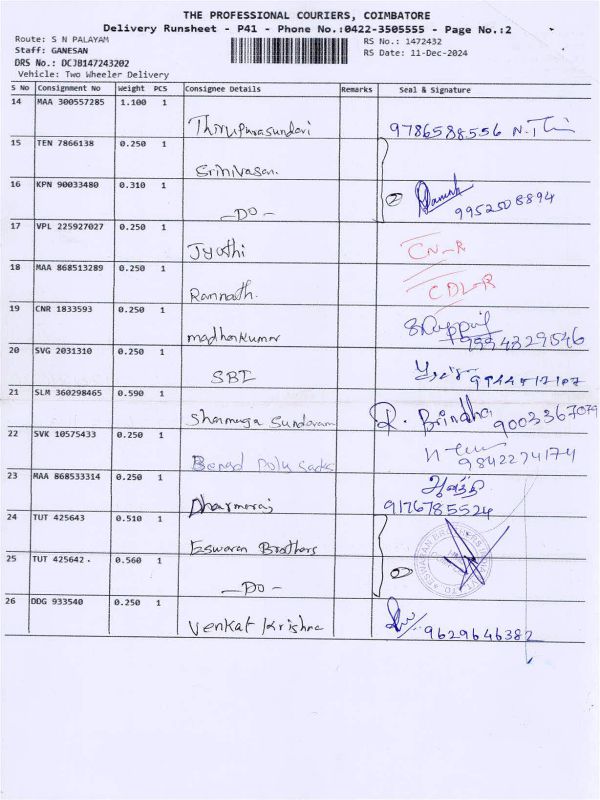 THE PROFESSIONAL COURIERS, COIMBATORE
Delivery Runsheet - P41 - Phone No.:0422-3505555 - Page No.:2
Route: S N PALAYAM
Staff: GANESAN
DRS No.: DCJB147243202
Vehicle: Two Wheeler Delivery
RS No.: 1472432
RS Date: 11-Dec-2024
S No Consignment No Weight PCS Consignee Details Remarks Seal & Signature
14 MAA 300557285 1.100 1 Thirupurasundari 9786588556
15 TEN 7866138 0.250 1 Srinivasan.
16 KPN 90033480 0.310 1 -DO- 2 9952508894
17 VPL 225927027 0.250 1 Jyothi CN-R
18 MAA 868513289 0.250 1 Ramnath. CDL-R
19 CNR 1833593 0.250 1 madhankumar 9994329546
20 SVG 2031310 0.250 1 SBI
21 SLM 360298465 0.590 1 Shanmuga Sundaram R. Brindha 9003367079
22 SVK 10575433 0.250 1 9842274174
23 MAA 868533314 0.250 1 Dharmaraj 9176785524
24 TUT 425643 0.510 1 Eswaran Brothers
25 TUT 425642. 0.560 1 -DO- 2
26 DDG 933540 0.250 1 Venkat Krishna 9629646382